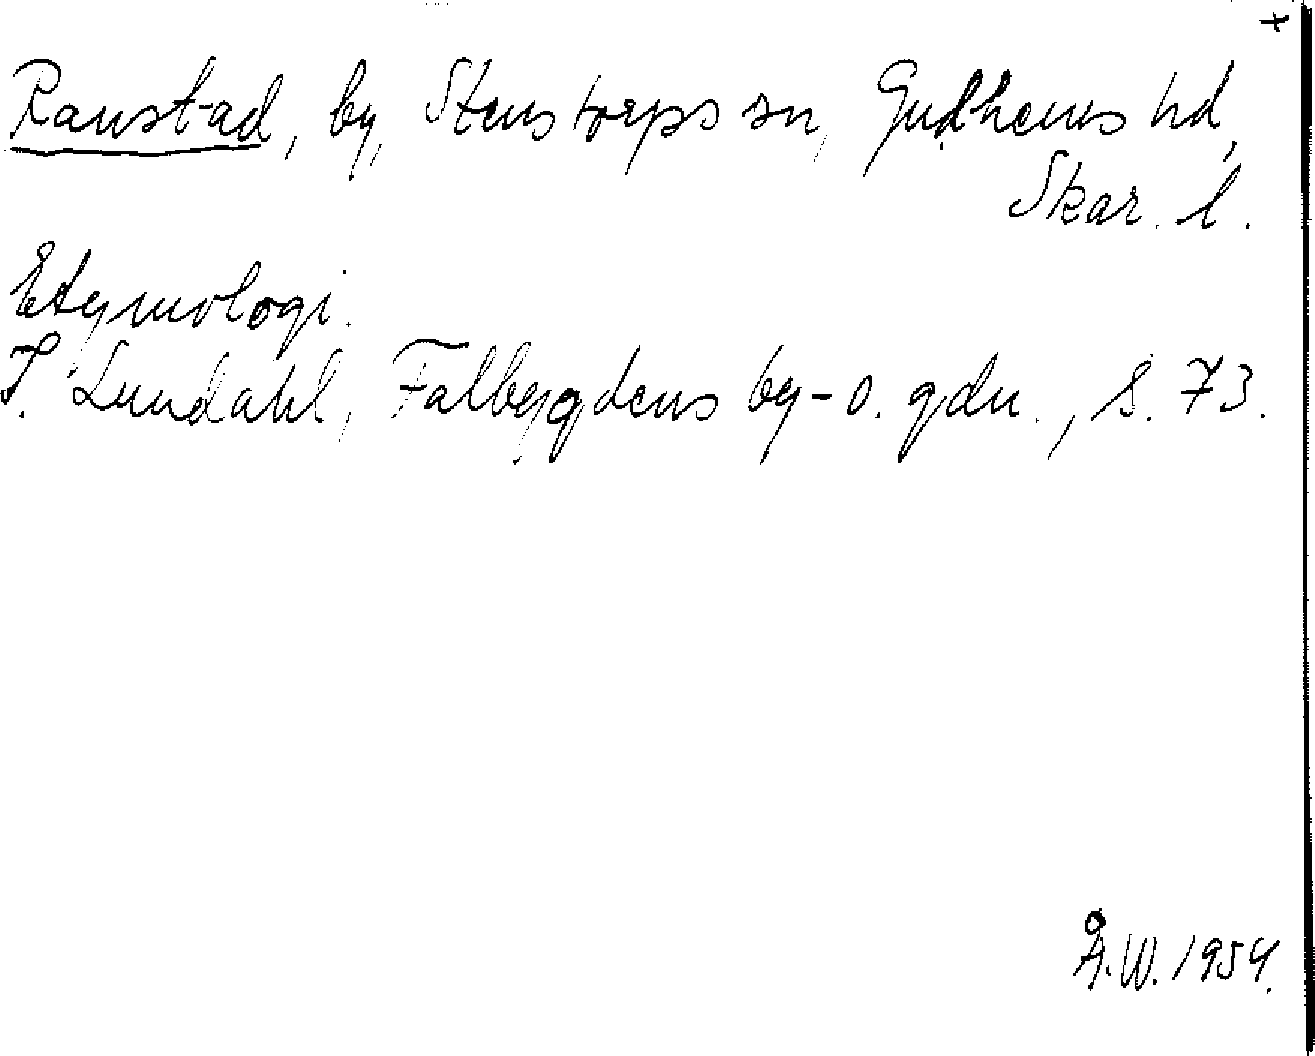 +
Ranstad, by, Stenstorps sn, Gudhems hd,
Skar. l.
Etymologi.
I. Lundahl, Falbygdens by- o. gdn., s. 73.
Å.W. 1954.